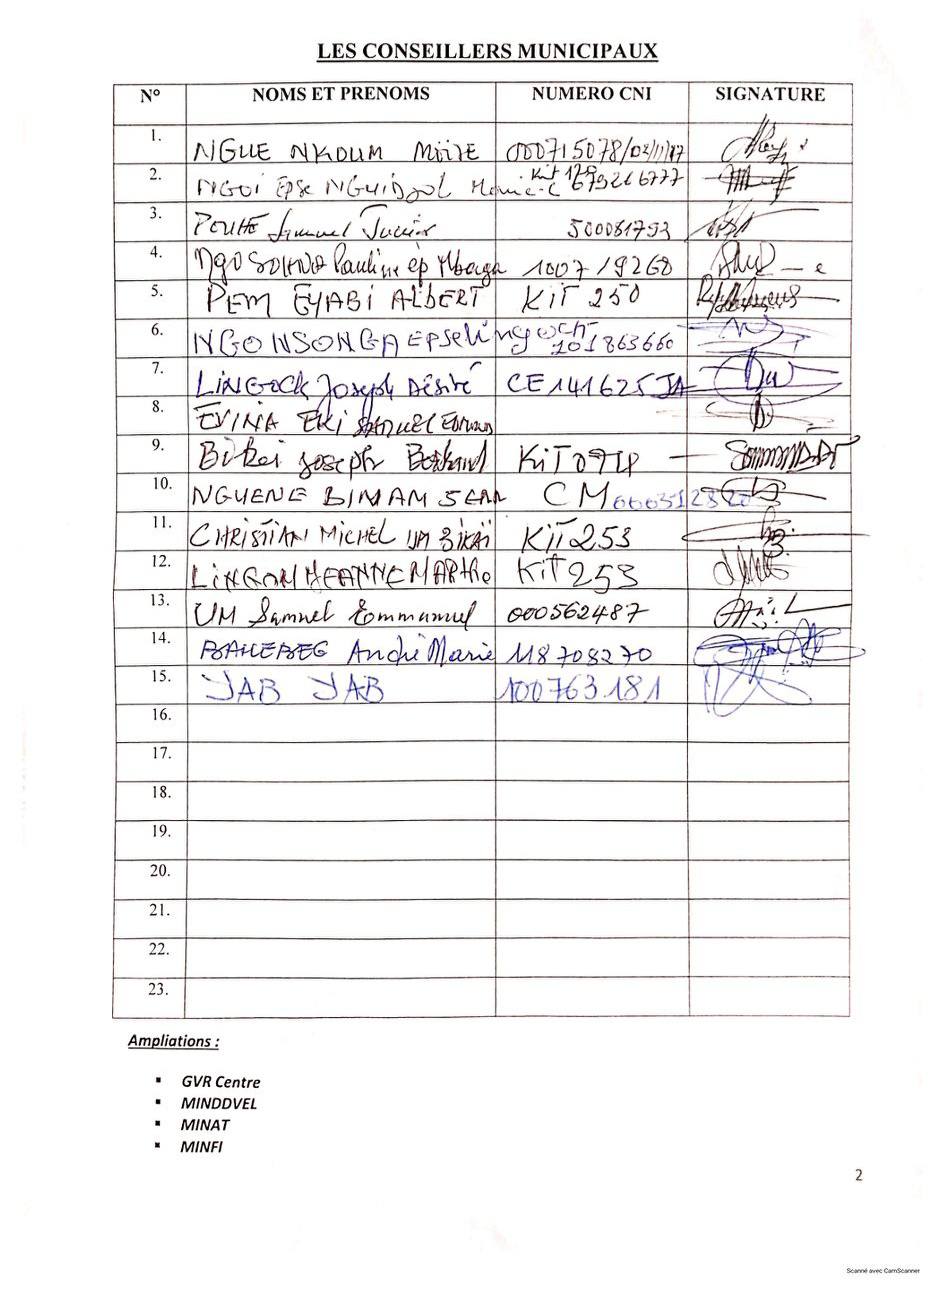 LES CONSEILLERS MUNICIPAUX
N° NOMS ET PRENOMS NUMERO CNI SIGNATURE
1. NGUE NKOUM 000715078/02/11/17
2. NGOI Epse NGUIDJOL Kit 129 679216777
3. POUHE Samuel Junior 500081793
4. Ngo SOHNA Pauline ép Mbaga 100719268
5. PEM EYABI ALBERT KIT 250
6. NGONSONGA EPSE Lingoch 101863660
7. LINGOCK Joseph Désiré CE141625JA
8. EVINA EKI SAMUEL
9. Bikei Joseph Bertrand KIT
10. NGUENE BIMAM JEAN CM
11. CHRISTIAN MICHEL UM BIKAÏ KIT 253
12. LINGOM JEANNE MARTHE KIT 253
13. UM Samuel Emmanuel 000562487
14. André Marie 118708270
15. YAB YAB 100763181
16.
17.
18.
19.
20.
21.
22.
23.
Ampliations :
▪ GVR Centre
▪ MINDDVEL
▪ MINAT
▪ MINFI
2
Scanné avec CamScanner